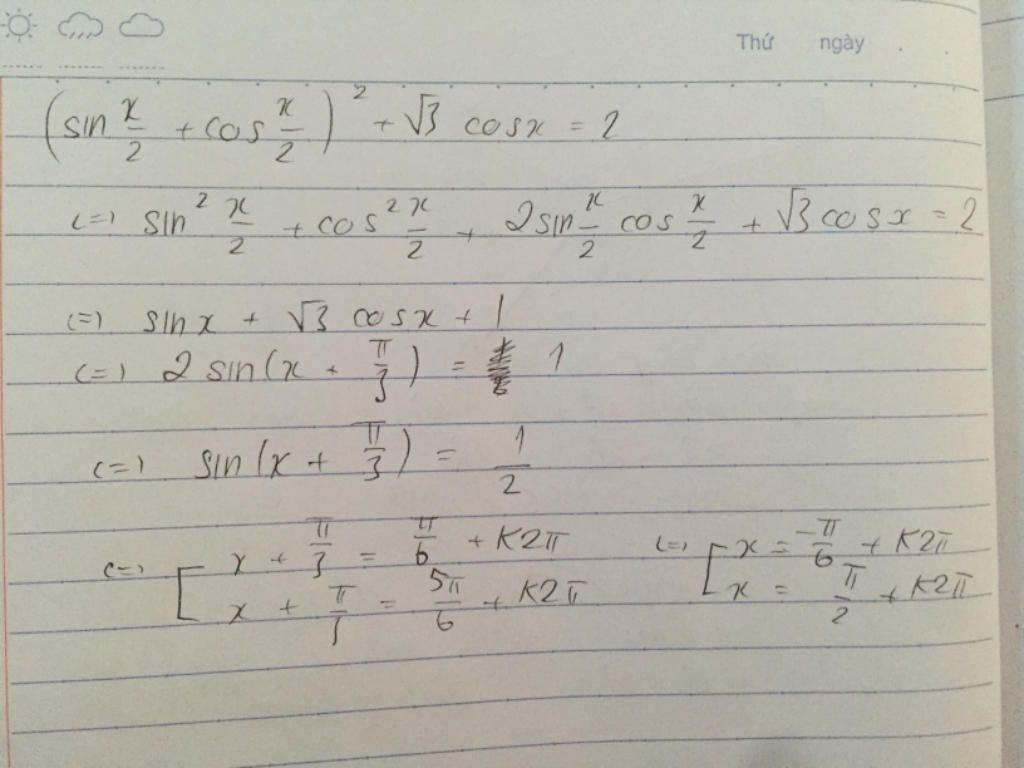 Thứ ngày . .
(sin x/2 + cos x/2)² + √3 cosx = 2
(=) sin² x/2 + cos² x/2 + 2sin x/2 cos x/2 + √3 cosx = 2
(=) sinx + √3 cosx + 1
(=) 2 sin(x + π/3) = 1
(=) sin(x + π/3) = 1/2
(=) [ x + π/3 = π/6 + K2π (=) [ x = -π/6 + K2π
x + π/3 = 5π/6 + K2π x = π/2 + K2π